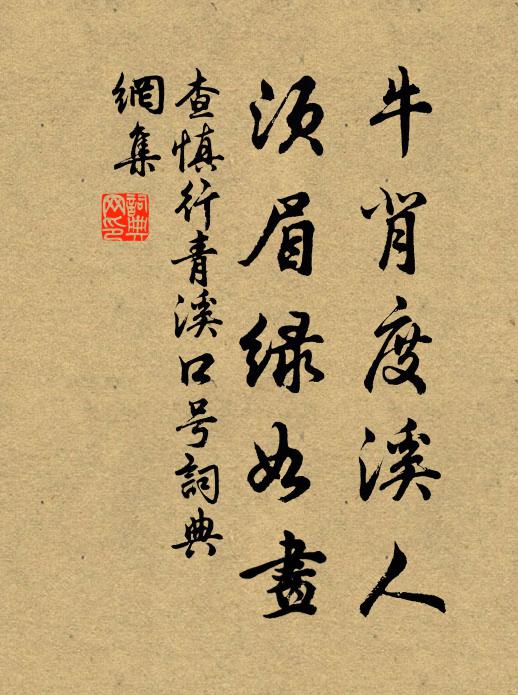 牛背度溪人
須眉綠如畫
查慎行青溪口号詞典
網集
詞典網印